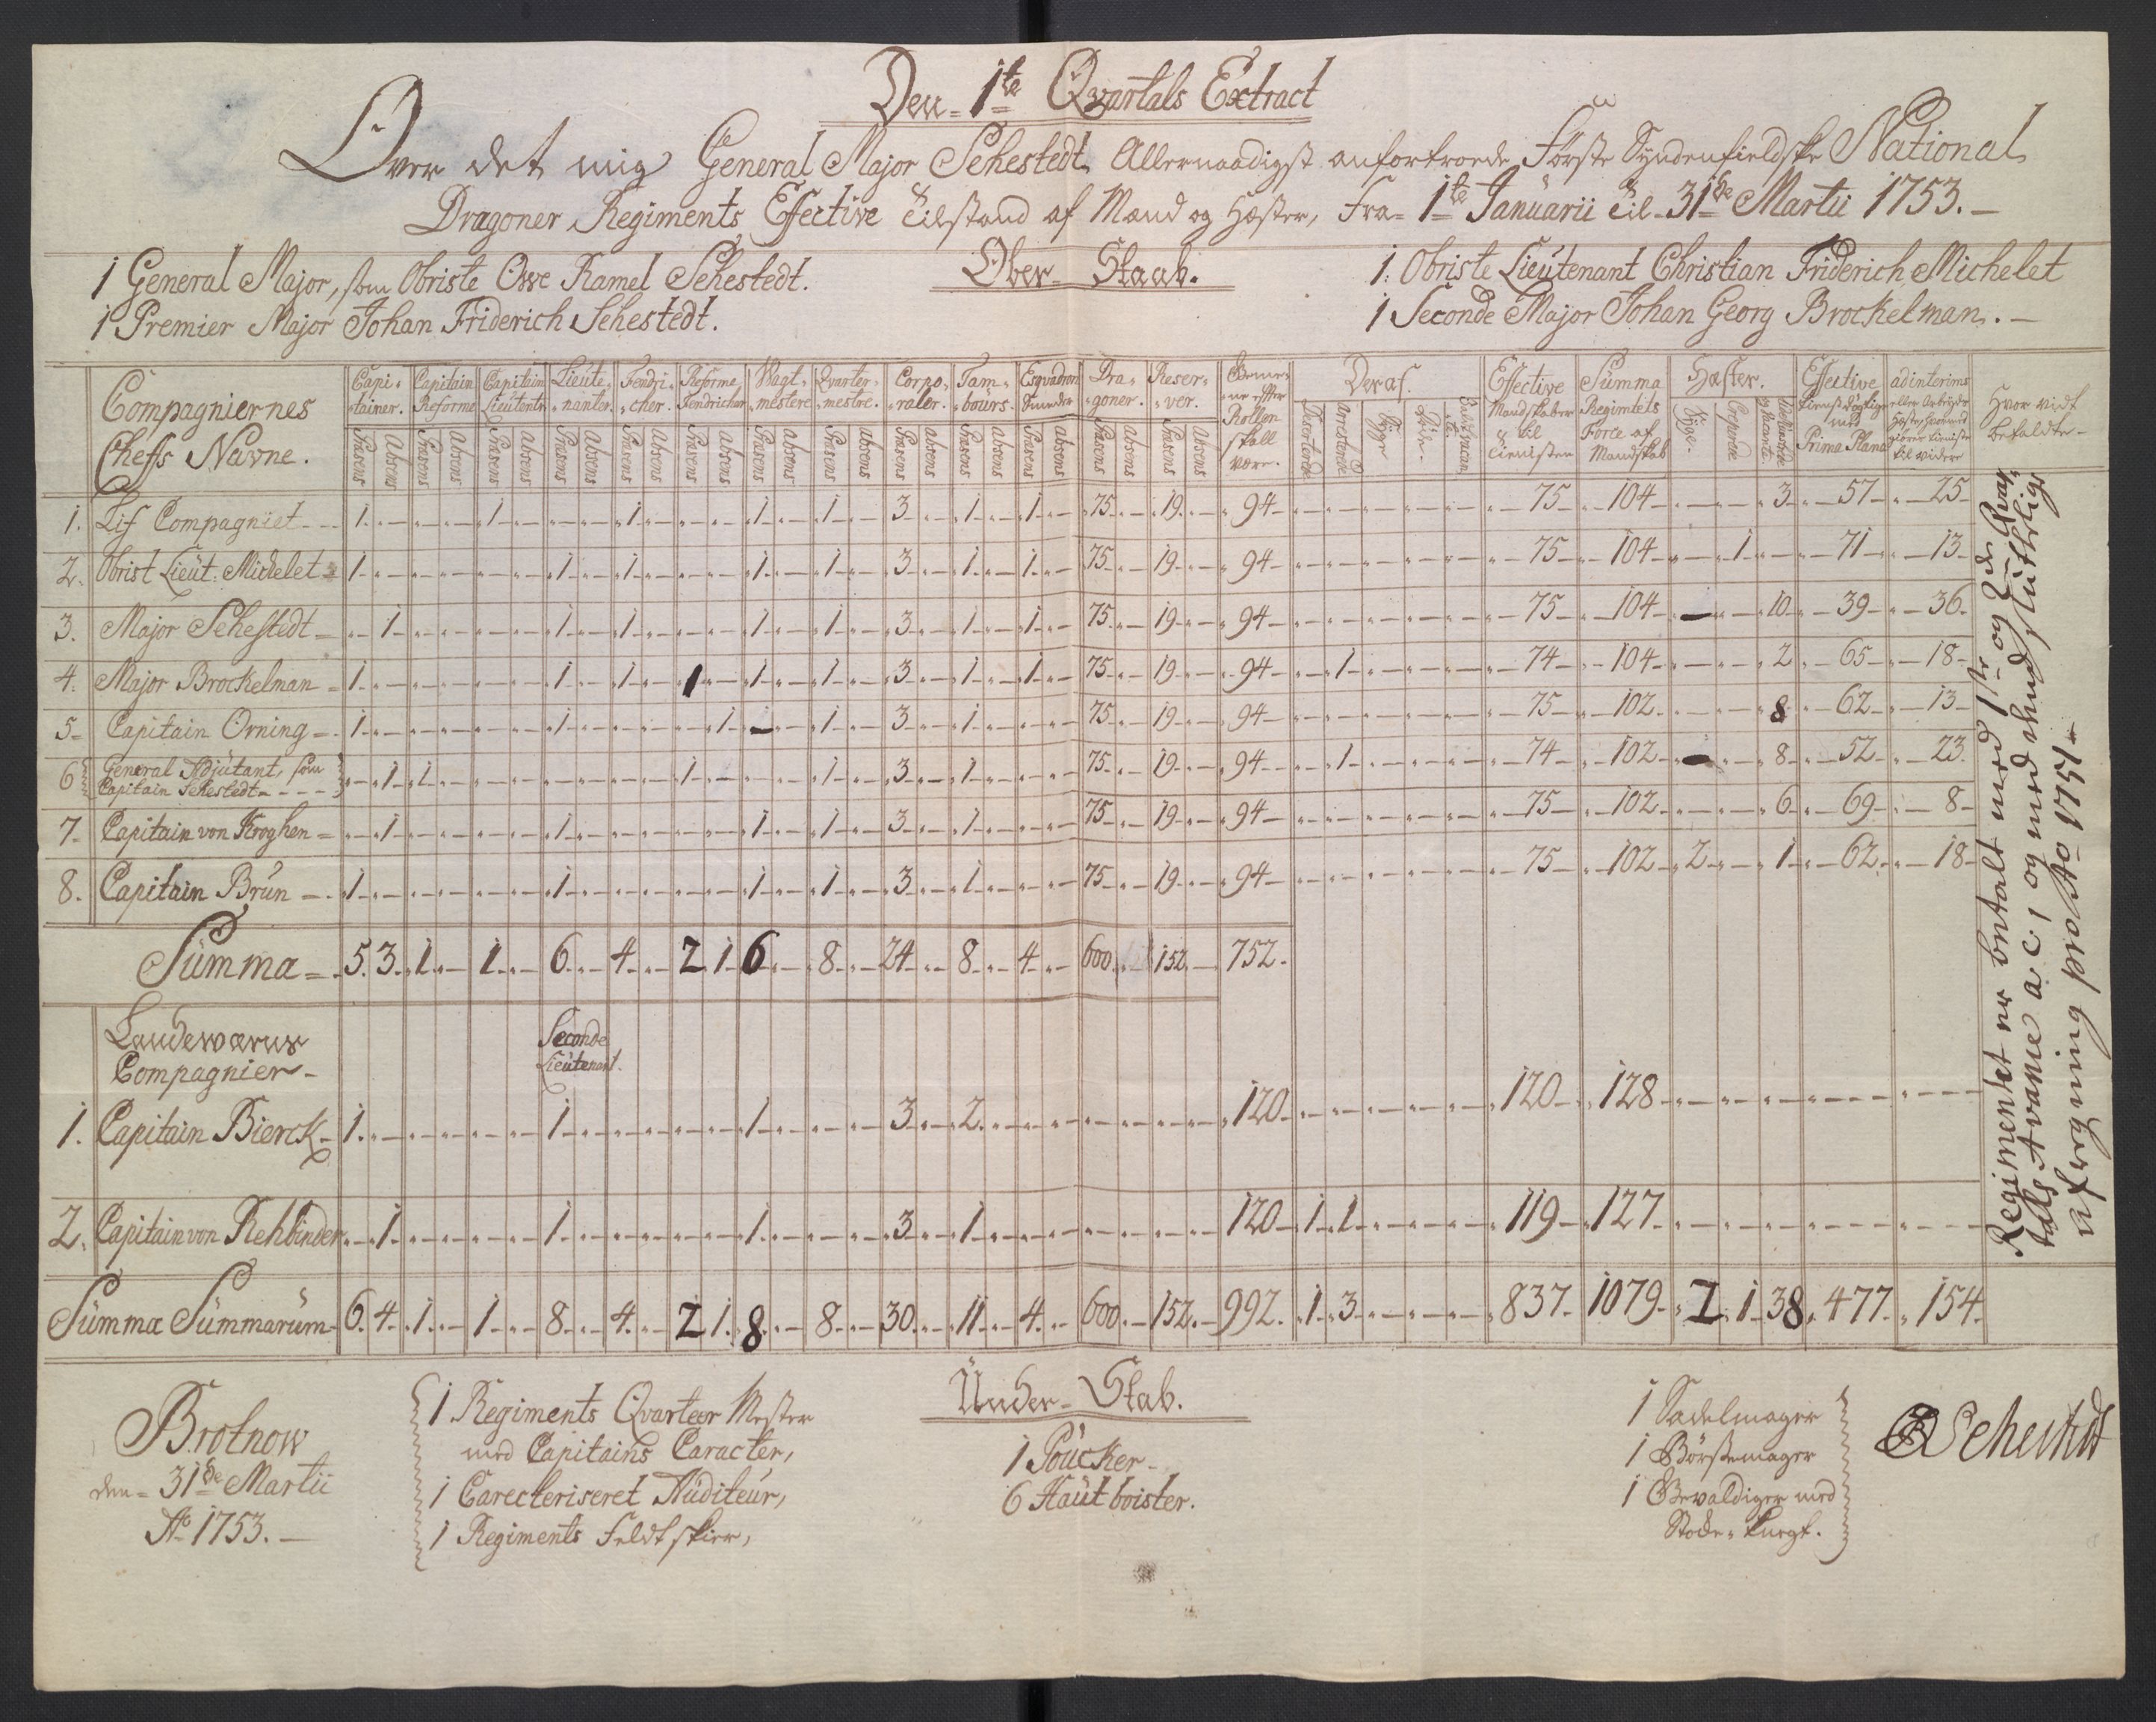 Den 1te Qvartals Extract
Over det mig General Major Sehestedt Allernaadigst anfortroede Förste Syndenfieldske National
Dragoner Regiments Effective Tilstand af Mand og Hæster, Fra 1te Januarii til 31de Martii 1753.
1 General Major, som Obriste Owe Ramel Sehestedt.
Ober Staab.
1. Obriste Lieutenant Christian Friderich Michelet
1 Premier Major Johan Friderich Sehestedt.
1 Seconde Major Johan Georg Brockelman.
Compagniernes Cheffs Navne.
Capi-tainer. Præsens Absens
Capitain Reforme Præsens Absens
Capitain Lieutents Præsens Absens
Lieute-nanter. Præsens Absens
Fendri-cher. Præsens Absens
Reforme Fendricher Præsens Absens
Vagt-mestere Præsens Absens
Qvarter-mestre. Præsens Absens
Corpo-raler. Præsens Absens
Tam-bours. Præsens Absens
Esqvadron Smeder Præsens Absens
Dra-goner. Præsens Absens
Reser-ver. Præsens Absens
Gemene effter Rollen skall være.
Deraf. Deserterede Arresterede Syge Döde
Effective Mandskaber til Tienisten
Summa Regimentets Force af Mandskab
Hæster. Syge. Creperede og Vacante
Effective Tienstdögtige med Prima Plana
ad interims eller Arbeyds Hæster hvormed giöres Tieniste til videre
Hvor vidt betaldte
1. Lif Compagniet 1 1 1 1 1 3 1 1 75 19 94 75 104 3 57 25
2. Obrist Lieut: Michelet 1 1 1 1 1 3 1 1 75 19 94 75 104 1 71 13
3. Major Sehestedt 1 1 1 1 1 3 1 1 75 19 94 75 104 10 39 36
4. Major Brockelman 1 1 1 1 1 1 3 1 1 75 19 94 1 74 104 2 65 18
5 Capitain Orning 1 1 1 1 3 1 75 19 94 75 102 8 62 13
6 General Adjutant, som Capitain Sehestedt 1 1 1 1 3 1 75 19 94 1 74 102 8 52 23
7. Capitain von Kroghen 1 1 1 1 3 1 75 19 94 75 102 6 69 8
8. Capitain Brün 1 1 1 1 3 1 75 19 94 75 102 2 1 62 18
Summa 5. 3. 1 1 6 4 2 1 6 8 24 8 4 600 152 752.
Landeværns Compagnier
Seconde Lieutenant.
1. Capitain Bierck 1 1 1 3 2 120 120 128
2. Capitain von Rehbinder 1 1 1 3 1 120 1 1 119 127
Summa Summarum 6. 4. 1 1 8 4 2 1 8 8 30 11 4 600 152 992. 1 3 837 1079 2 1 38 477 154
Regimentet er betalt med 1ste og 2de Qvar-
tals Avance a.c. og med
afregning pro Ao 1751
Under Stab.
Brotnow
den 31de Martii
Ao 1753.
1 Regiments Qvarteer Mester
med Capitains Caracter,
1 Carecteriseret Auditeur,
1 Regiments Feldtskier,
1 Poucker
6 Hautboister.
1 Sadelmager
1 Börstemager
1 Gevaldiger med
Stode-Knegt.
OR Sehestedt